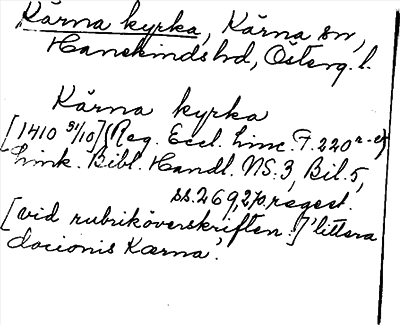 Kärna kyrka, Kärna sn,
Hanekinds hd, Österg. l.
Kärna kyrka
[1410 31/10] (Reg. Eccl. Linc. F. 220 r-v)
Link. Bibl. Handl. NS. 3, Bil. 5,
ss. 269, 270, regest.
[vid rubriköverskriften:] 'littera
dacionis Kærna'.